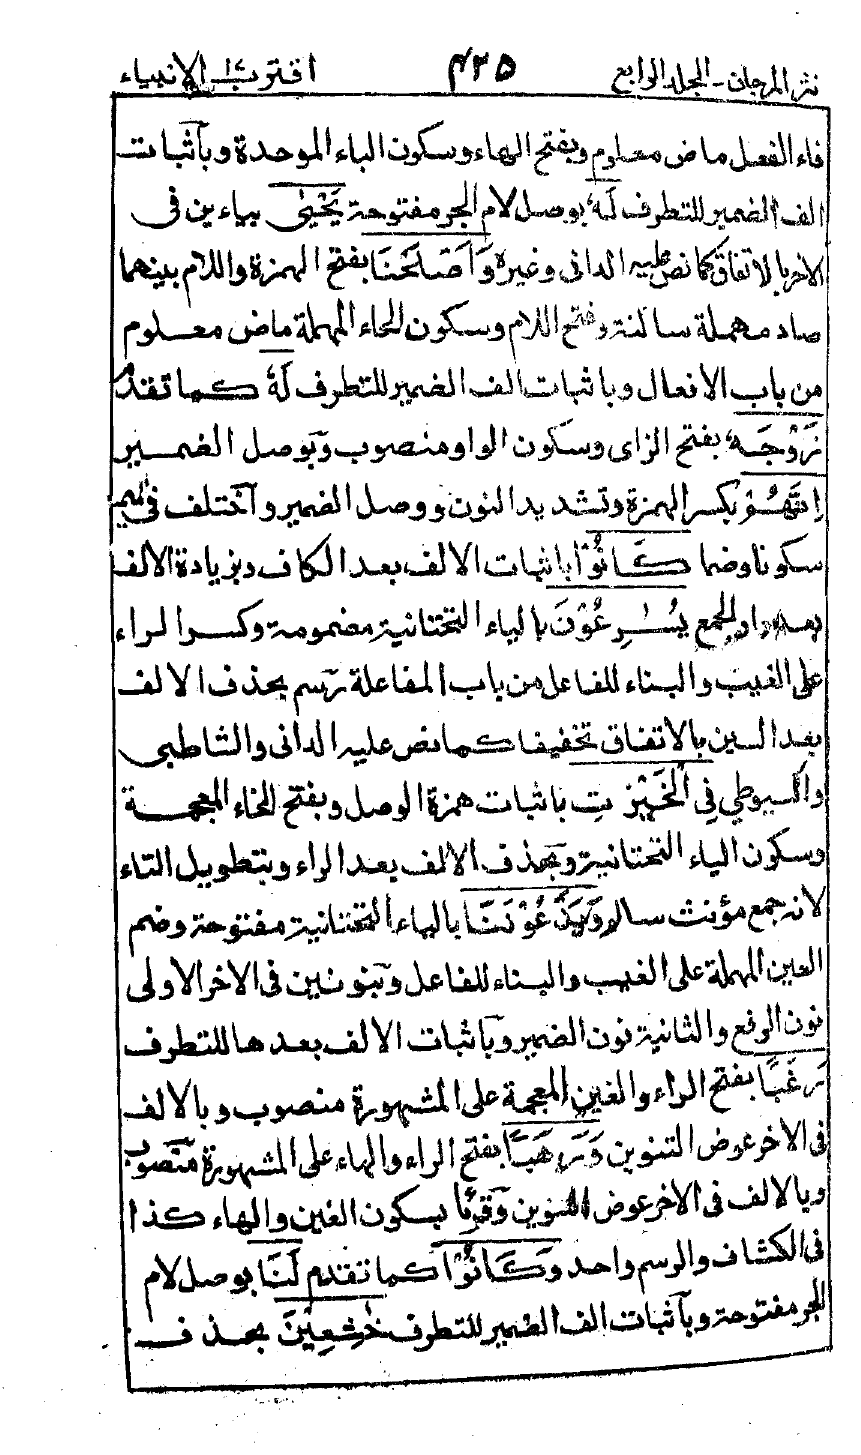 نثر المرجان - المجلد الرابع ٤٣٥ اقترب ١٧ الانبياء
فاء الفعل ماض معلوم وبفتح الهاء وسكون الباء الموحدة وبآثبات
الف الضمير للتطرف لَهٗ بوصل لام الجر مفتوحة يَحْيٰى بياءين فى
الاخر بالاتفاق كما نص عليه الدانى وغيره وَاَصْلَحْنَا بفتح الهمزة واللام بينهما
صاد مهملة ساكنة وفتح اللام وسكون الحاء المهملة ماض معلوم
من باب الافعال وباثبات الف الضمير للتطرف لَهٗ كما تقدم
زَوْجَهٗ بفتح الزاى وسكون الواو منصوب وبوصل الضمير
اِنَّهُمْ بكسر الهمزة وتشديد النون ووصل الضمير وآختلف فى الميم
سكونا وضما كَانُوْا باثبات الالف بعد الكاف وبزيادة الالف
بعد واو الجمع يُسٰرِعُوْنَ بالياء التحتانية مضمومة وكسر الراء
على الغيب والبناء للفاعل من باب المفاعلة رسم بحذف الالف
بعد السين بالاتفاق تخفيفا كما نص عليه الدانى والشاطبى
والسيوطي فِى الْخَيْرٰتِ باثبات همزة الوصل وبفتح الخاء المعجمة
وسكون الياء التحتانية وبحذف الالف بعد الراء وبتطويل التاء
لانه جمع مؤنث سالم وَيَدْعُوْنَنَا بالياء التحتانية مفتوحة وضم
العين المهملة على الغيب والبناء للفاعل وبنونين فى الاخر الاولى
نون الرفع والثانية نون الضمير وبآثبات الالف بعدها للتطرف
رَغَبًا بفتح الراء والغين المعجمة على المشهورة منصوب وبالالف
فى الاخر عوض التنوين وَّرَهَبًا بفتح الراء والهاء على المشهورة منصوب
وبالالف فى الاخر عوض التنوين وقرئا بسكون الغين والهاء كذا
فى الكشاف والرسم واحد وَكَانُوْا كما تقدم لَنَا بوصل لام
الجر مفتوحة وبآثبات الف الضمير للتطرف خٰشِعِيْنَ بحذف